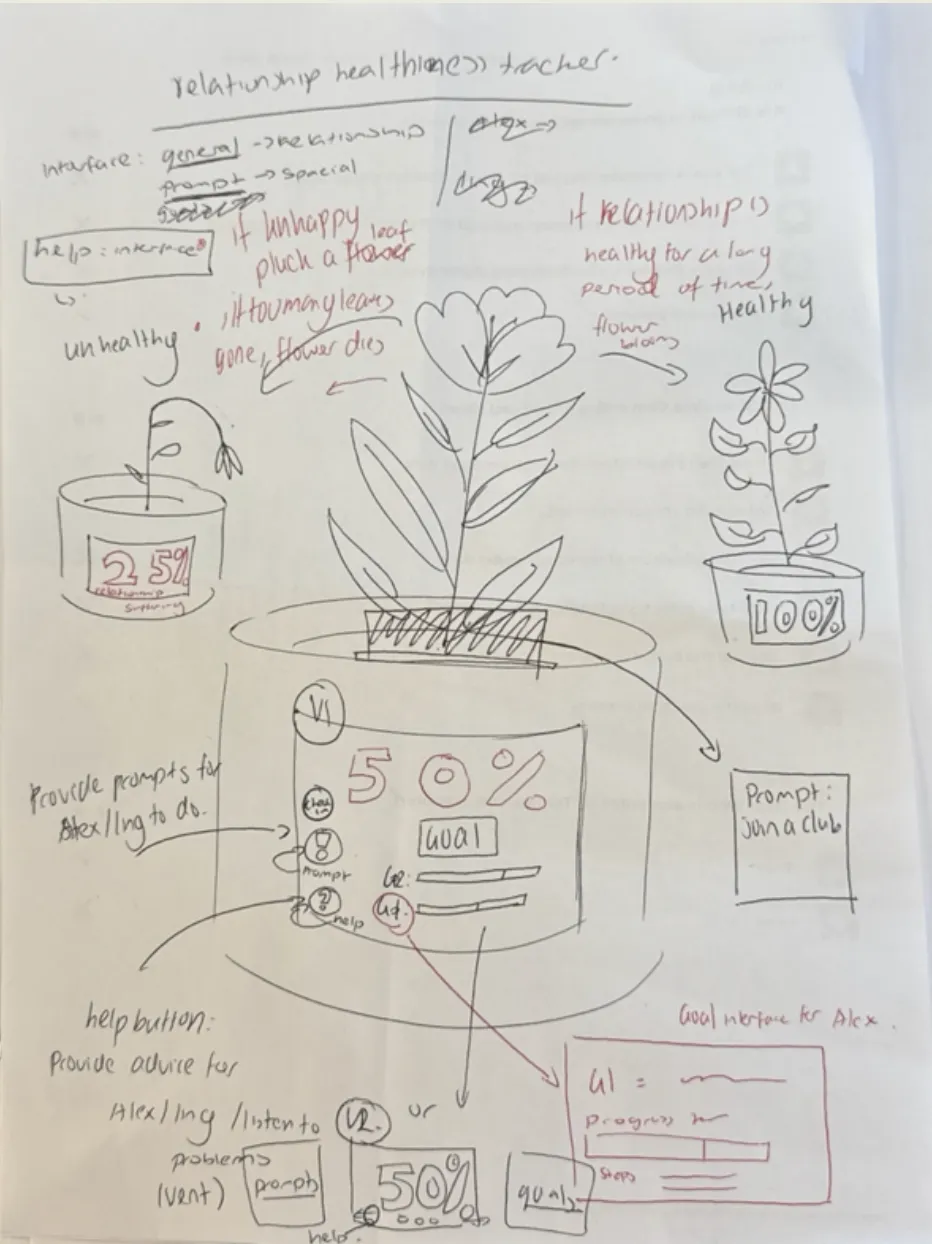 relationship healthiness tracker.
interface: general → relationship
prompt → special
help: interface
if unhappy
pluck a leaf flower
if too many leaves
gone, flower dies
if relationship is
healthy for a long
period of time,
flower blooms
Healthy
unhealthy
25%
relationship
suffering
100%
V1
50%
check in
Goal
prompt
G2:
G1.
? help
Provide prompts for
Alex/Ing to do.
Prompt:
Join a club
help button:
Provide advice for
Alex/Ing / listen to
problems
(vent)
V2. or
prompts
50%
goals
help.
Goal interface for Alex.
G1 =
progress
steps